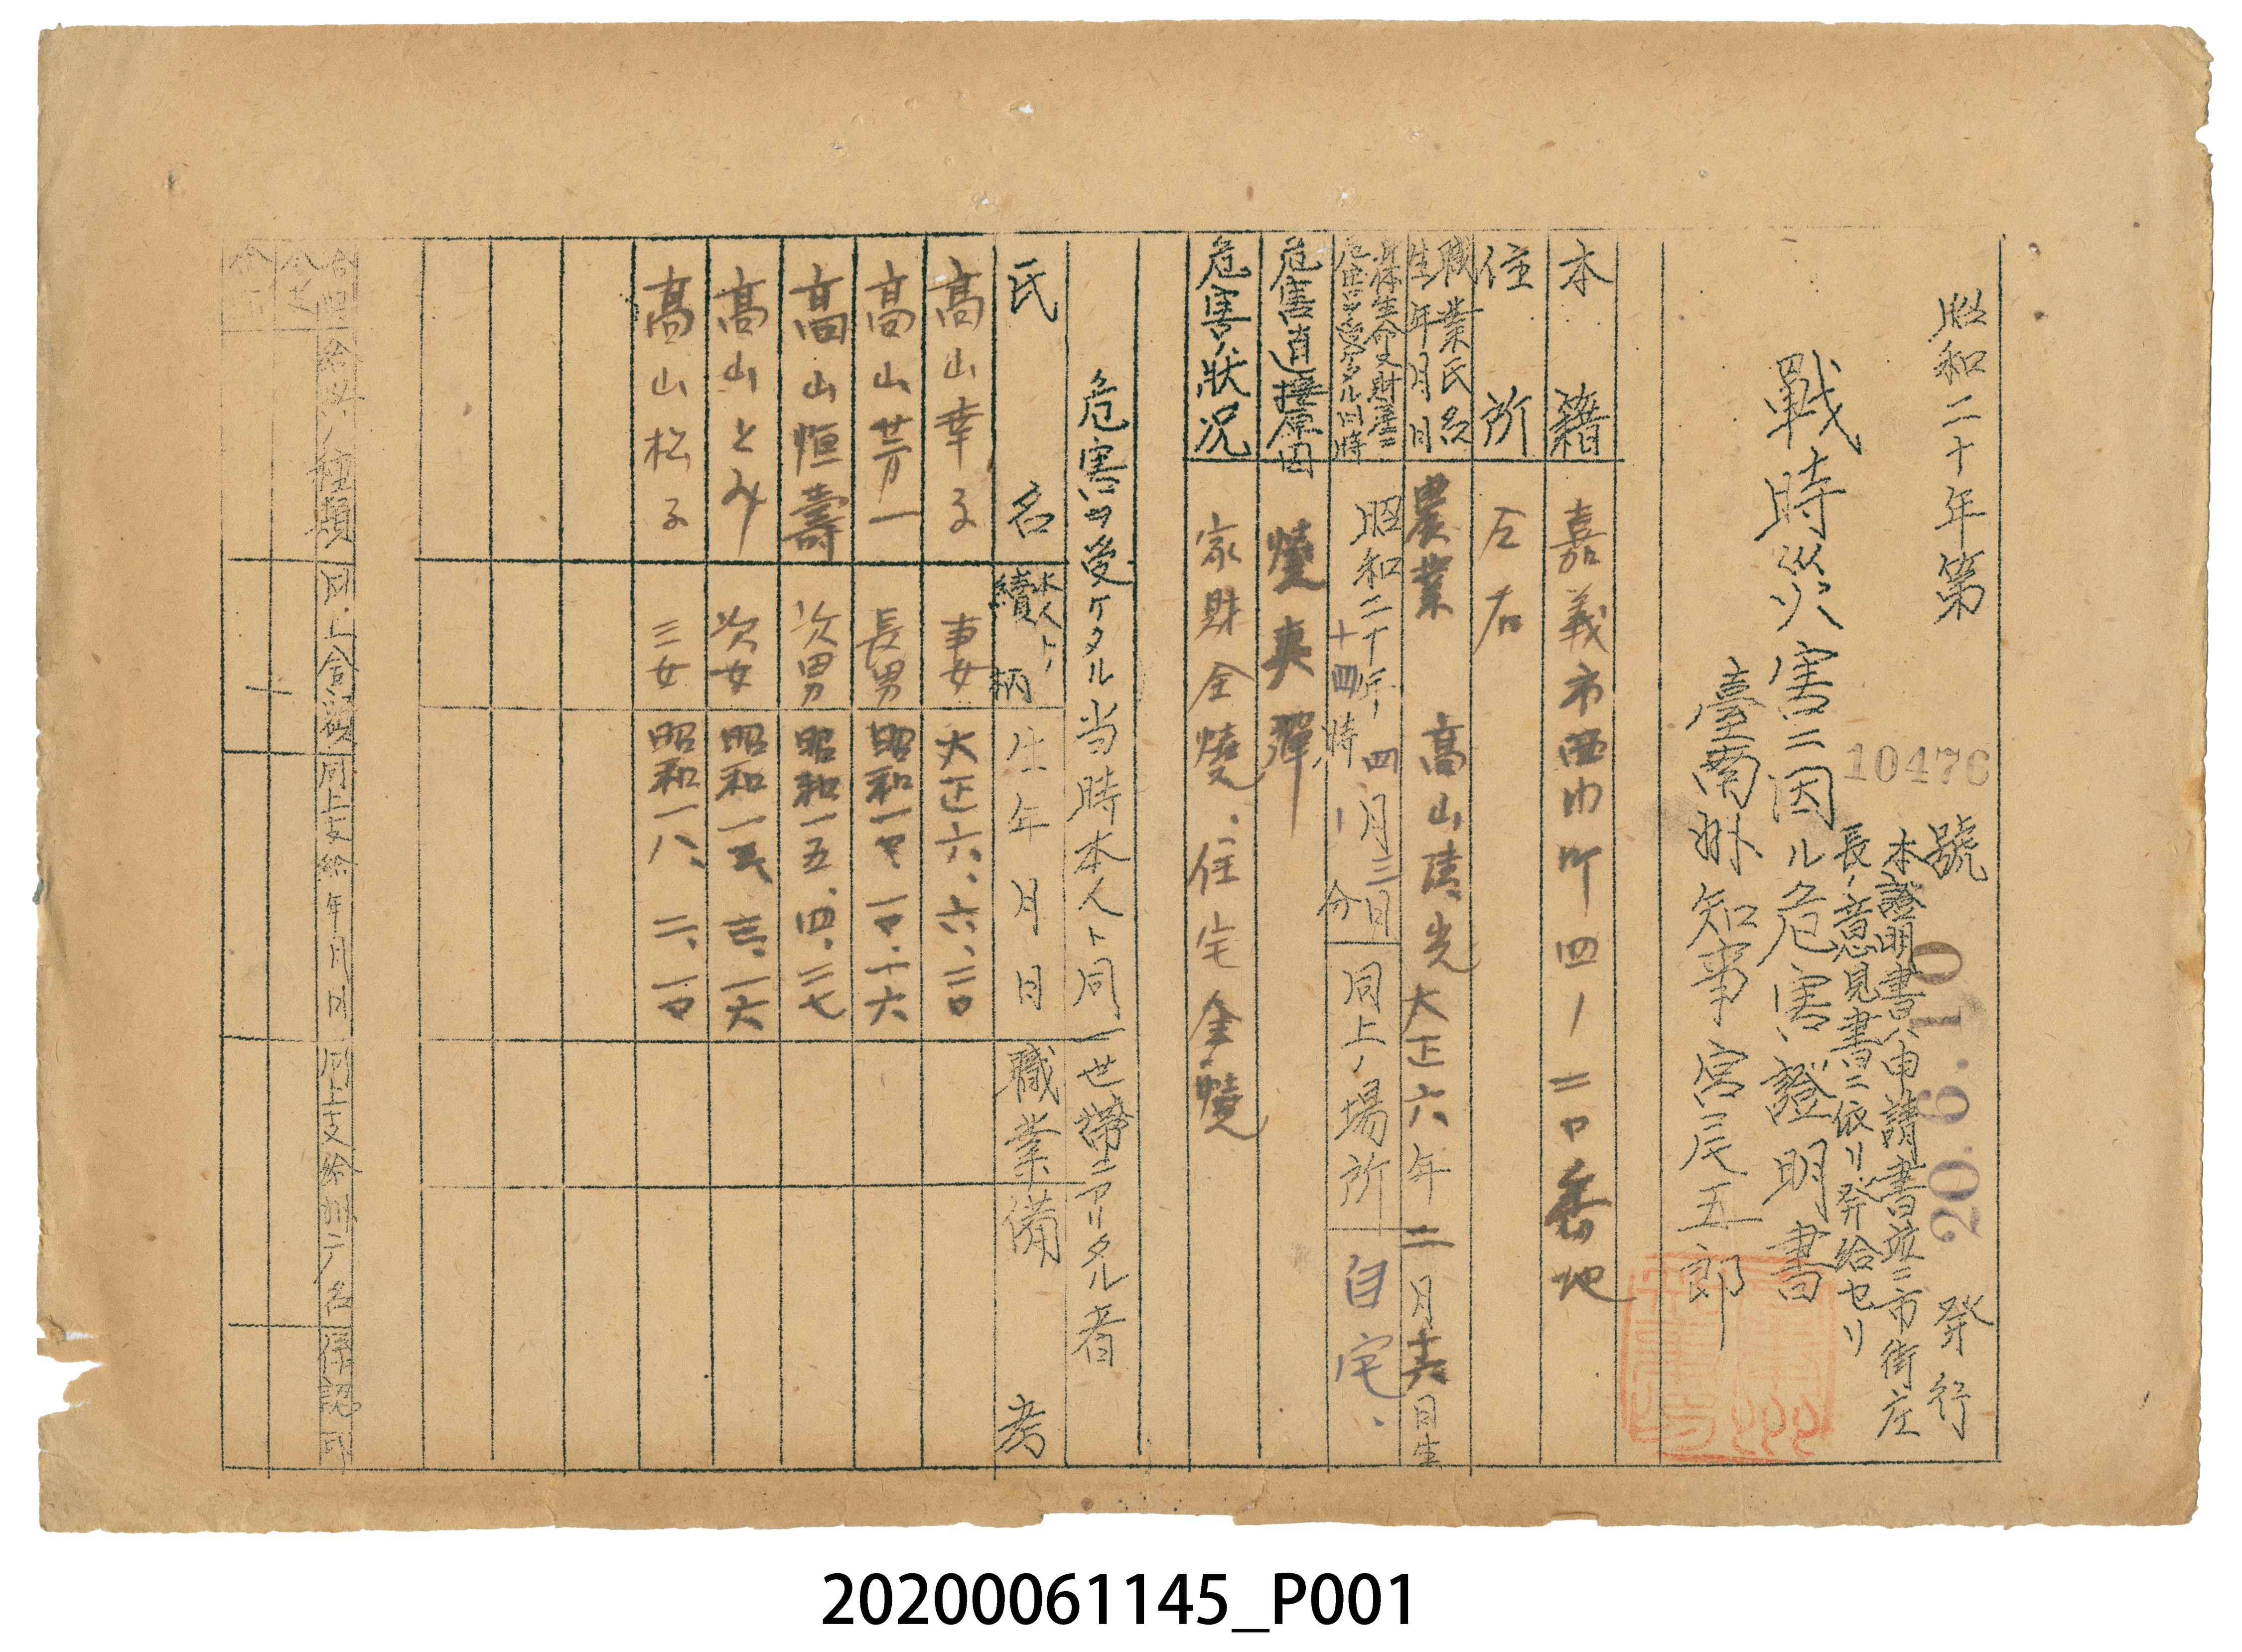 昭和二十年第10476號 發行
20.6.10
本證明書ハ申請書竝ニ市街庄
長ノ意見書ニ依リ發給セリ
戰時災害ニ因ル危害證明書
臺南州知事宮尾五郎
本籍 嘉義市西市町四ノ二〇番地
住所 左右
職業氏名 農業 高山清光
生年月日 大正六年二月 日生
身体生命又ハ財産ニ
危害ヲ受ケタル日時 昭和二十年四月三日
十四時 分
同上ノ場所 自宅、
危害直接原因 燒夷彈
危害ノ狀況 家財全燒、住宅全燒
危害ヲ受ケタル当時本人ト同一世帶ニアリタル者
氏名 本人トノ續柄 生年月日 職業 備考
高山幸子 妻 大正六、六、二〇
高山芳一 長男 昭和一 、一〇、一六
高山恒壽 次男 昭和一五、四、二七
高山とみ 次女 昭和一
高山松子 三女 昭和一八、二、一〇
給與ノ種類 同上金額 同上支給年月日 同上支給州廳名 係認印
20200061145_P001